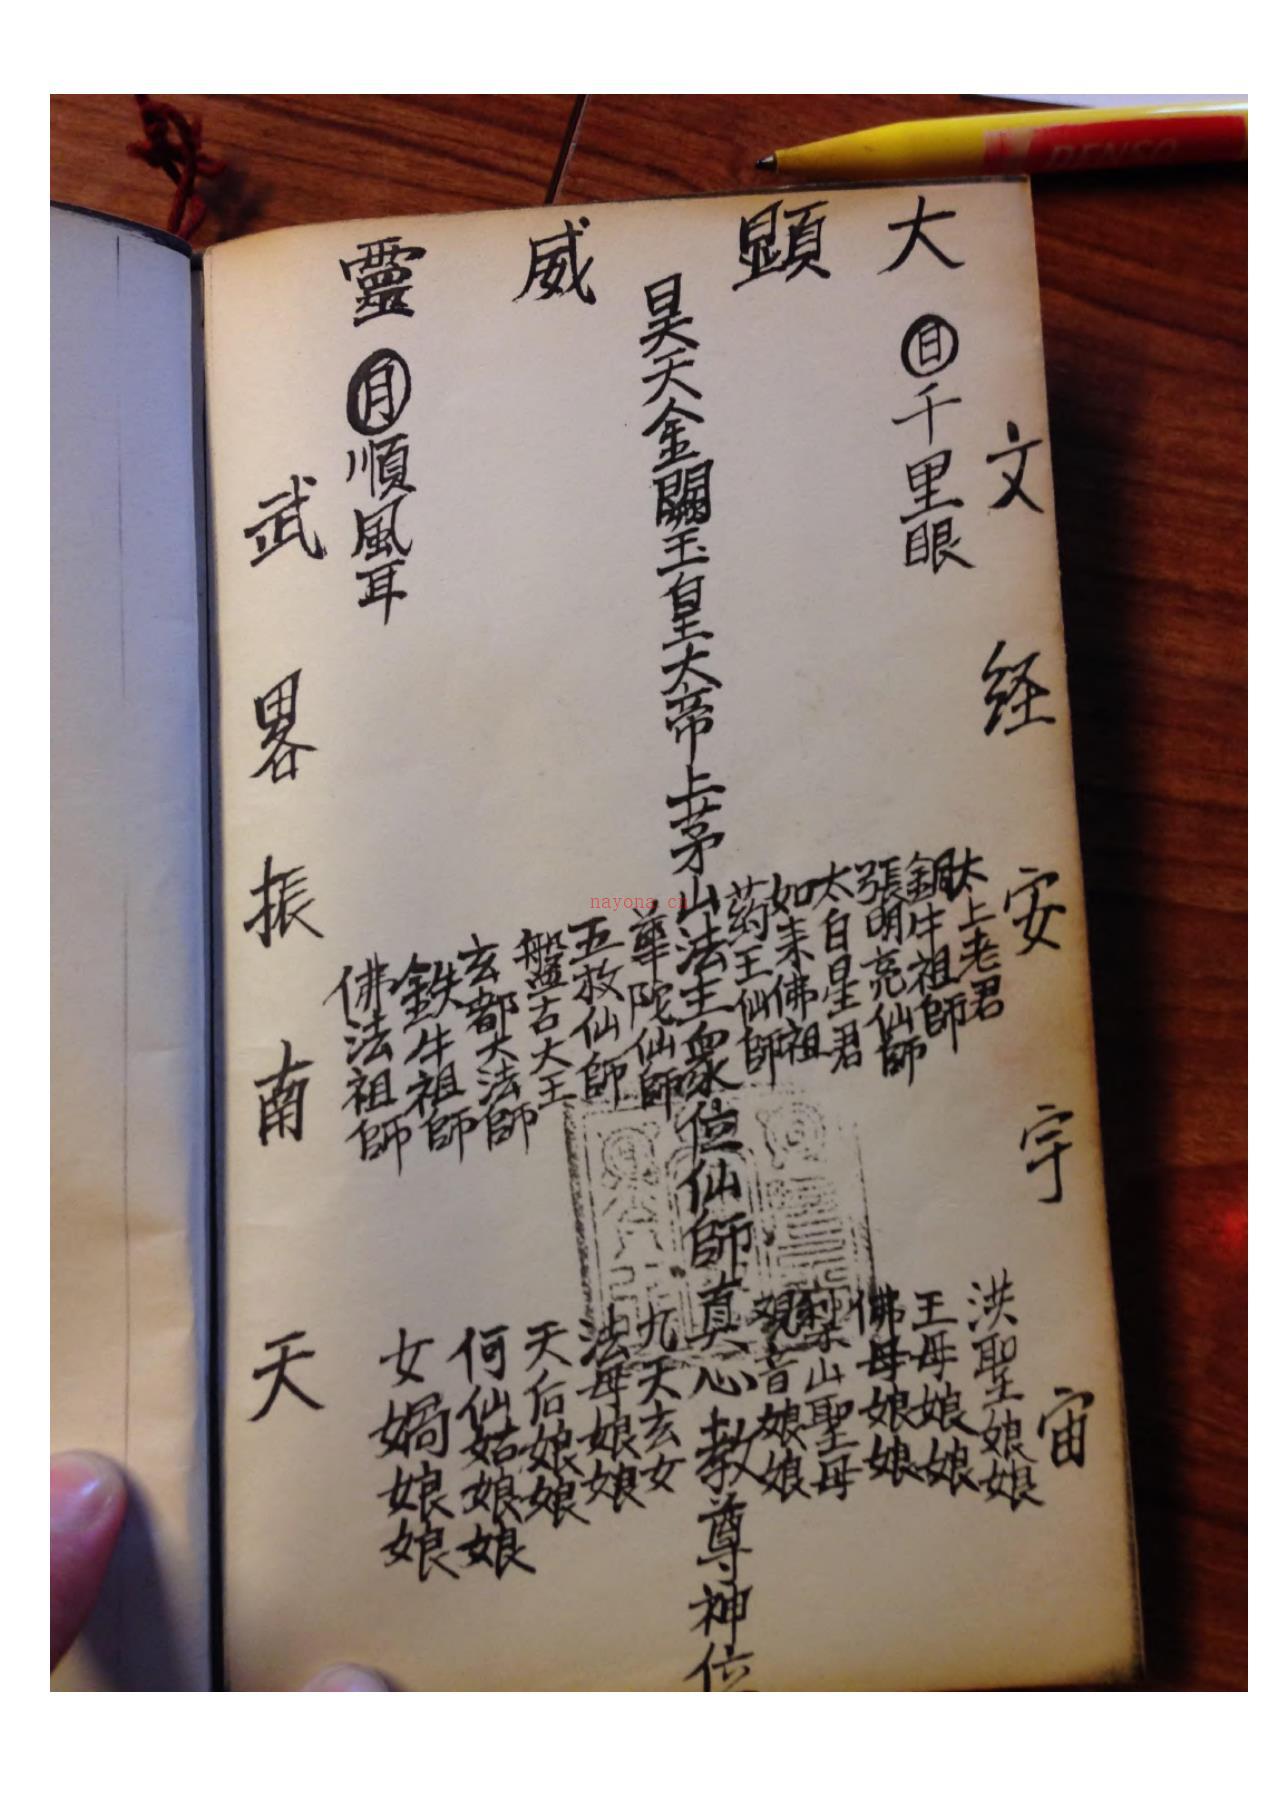 大顕威靈
文経安宇宙
日千里眼
太上老君
銅牛祖師
張明亮仙師
太白星君
如来佛祖
药王仙師
洪聖娘娘
王母娘娘
佛母娘娘
梨山聖母
观音娘娘
昊天金闕玉皇大帝上茅山法主衆位仙師真心教尊神位
華陀仙師
五救仙師
盤古大王
玄都大法師
鉄牛祖師
佛法祖師
九天玄女
法母娘娘
天后娘娘
何仙姑娘娘
女媧娘娘
月順風耳
武畧振南天
nayona.cn
DENSO